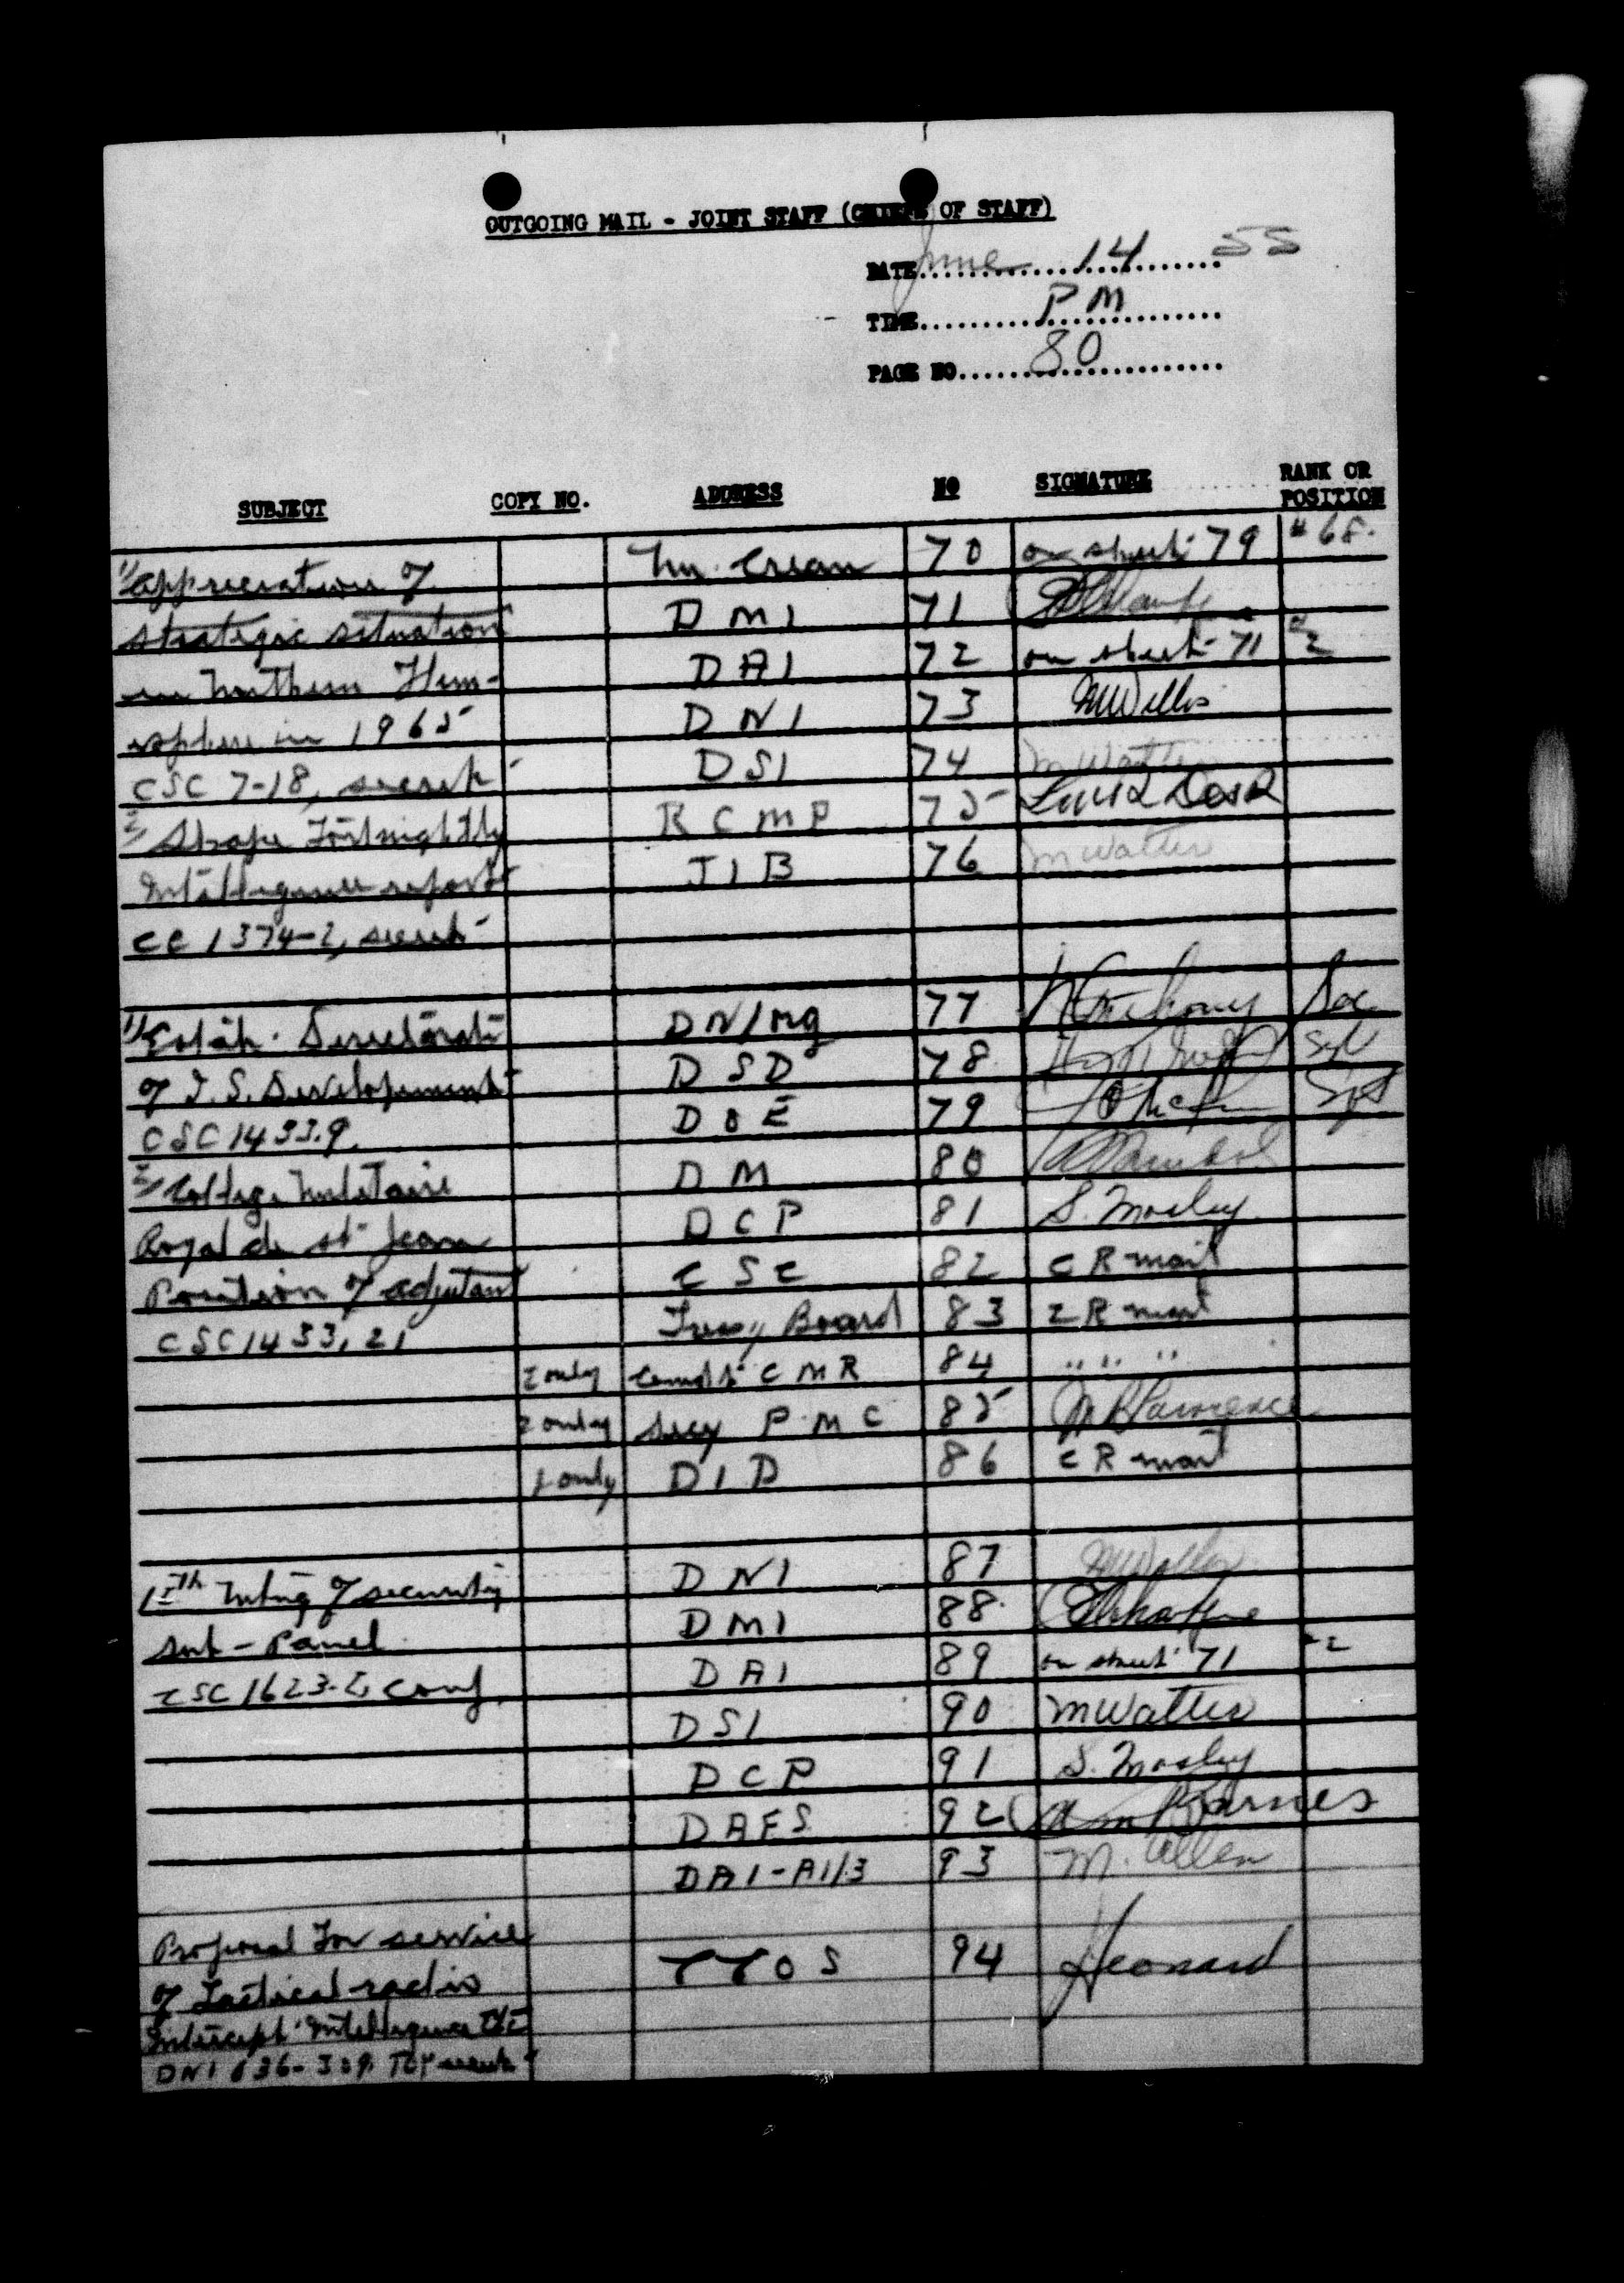 OUTGOING MAIL - JOINT STAFF (CHIEFS OF STAFF)
DATE June 14 55
TIME PM
PAGE NO 80
SUBJECT COPY NO. ADDRESS NO SIGNATURE RANK OR POSITION
1) Appreciation of Mr. Crean 70 on sheet 79 # 68.
strategic situation D M I 71
in Northern Hem- D A I 72 on sheet 71 # 2
isphere in 1965 D N I 73 MWillis
CSC 7-18, secret D S I 74 M Watters
2) Shape Fortnightly R C M P 75
Intelligence report J I B 76 M Watters
CC 1374-2, secret
1) Estab. Directorate D N/Mg 77
of I.S. Development D S D 78 Sgt
CSC 1433.9. D O E 79 Sgt
2) College Militaire D M 80
Royal de St Jean D C P 81 S. Mosley
Position of adjutant C S C 82 C R mail
CSC 1433.21 Treasy Board 83 C R mail
2 only Comdt C M R 84 " " "
2 only Secy P M C 85 Lawrence
1 only D I D 86 C R mail
15th Mtng of security D N I 87
Sub-Panel D M I 88
CSC 1623-2, Conf. D A I 89 on sheet 71 # 2
D S I 90 M Watters
D C P 91 S. Mosley
D A F S 92 Barnes
D A I - A I/3 93 M. Allen
Proposal for service T T O S 94 Leonard
of Tactical radio
Intercept Intelligence
DNI 636-309. Top secret